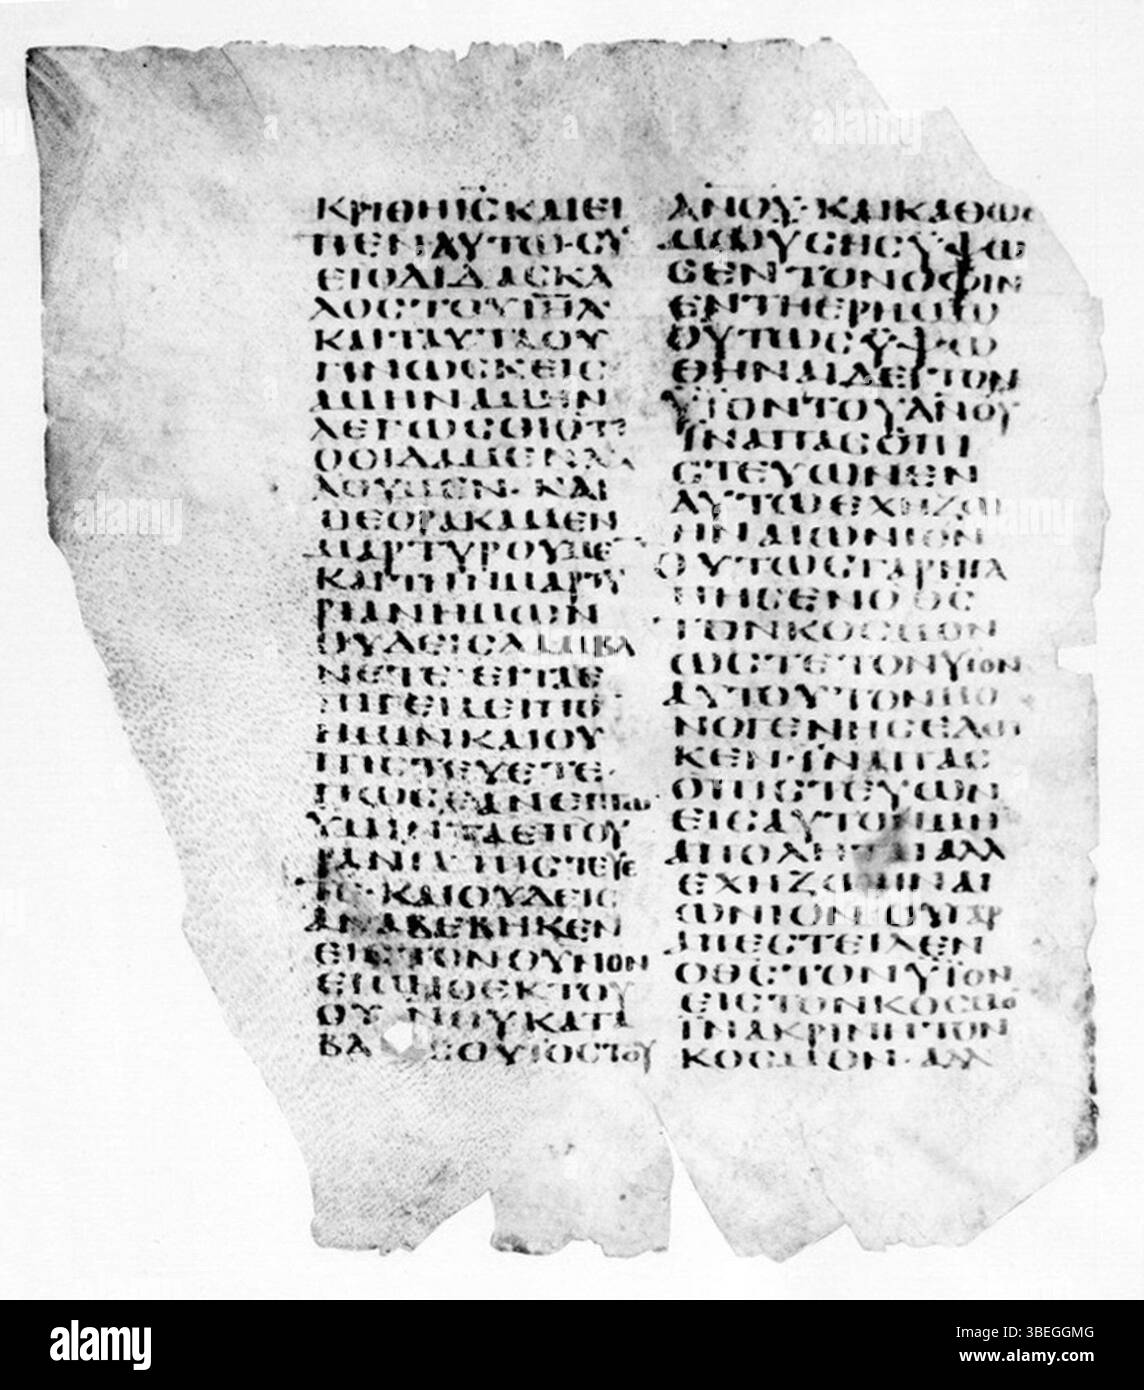 ΚΡΙΘΗ ΙC ΚΑΙ ΕΙ
ΠΕΝ ΑΥΤΩ· CΥ
ΕΙ Ο ΔΙΔΑCΚΑ
ΛΟC ΤΟΥ ΙΗΛ·
ΚΑΙ ΤΑΥΤΑ ΟΥ
ΓΙΝΩCΚΕΙC
ΑΜΗΝ ΑΜΗΝ
ΛΕΓΩ CΟΙ ΟΤΙ
Ο ΟΙΔΑΜΕΝ ΛΑ
ΛΟΥΜΕΝ· ΚΑΙ
Ο ΕΟΡΑΚΑΜΕΝ
ΜΑΡΤΥΡΟΥΜΕ
ΚΑΙ ΤΗΝ ΜΑΡΤΥ
ΡΙΑΝ ΗΜΩΝ
ΟΥΔΕΙC ΛΑΜΒΑ
ΝΕΤΕ· ΕΙ ΤΑ Ε
ΠΙΓΕΙΑ ΕΙΠΟ
ΚΑΙ ΟΥ
ΠΙCΤΕΥΕΤΕ·
ΠΩC ΕΑΝ ΕΙΠΩ
ΥΜΙΝ ΤΑ ΕΠΟΥ
ΡΑΝΙΑ ΠΙCΤΕΥΕ
ΤΕ· ΚΑΙ ΟΥΔΕΙC
ΑΝΑΒΕΒΗΚΕΝ
ΕΙC ΤΟΝ ΟΥΝΟΝ
ΕΙ ΜΗ Ο ΕΚ ΤΟΥ
ΟΥΝΟΥ ΚΑΤΑ
ΒΑC Ο ΥΙΟC ΤΟΥ
ΑΝΟΥ· ΚΑΙ ΚΑΘΩC
ΜΩΥCΗC ΥΨΩ
CΕΝ ΤΟΝ ΟΦΙΝ
ΕΝ ΤΗ ΕΡΗΜΩ
ΟΥΤΩC ΥΨΩ
ΘΗΝΑΙ ΔΕΙ ΤΟΝ
ΫΪΟΝ ΤΟΥ ΑΝΟΥ
ΪΝΑ ΠΑC Ο ΠΙ
CΤΕΥΩΝ ΕΝ
ΑΥΤΩ ΕΧΗ ΖΩ
ΗΝ ΑΙΩΝΙΟΝ
ΟΥΤΩC ΓΑΡ ΗΓΑ
ΠΗCΕΝ Ο ΘC
ΤΟΝ ΚΟCΜΟΝ
ΩCΤΕ ΤΟΝ ΥΪΟΝ
ΑΥΤΟΥ ΤΟΝ ΜΟ
ΝΟΓΕΝΗ ΕΔΩ
ΚΕΝ· ΪΝΑ ΠΑC
Ο ΠΙCΤΕΥΩΝ
ΕΙC ΑΥΤΟΝ ΜΗ
ΑΠΟΛΗΤΑΙ ΑΛΛ
ΕΧΗ ΖΩΗΝ ΑΙ
ΩΝΙΟΝ· ΟΥ ΓΑΡ
ΑΠΕCΤΕΙΛΕΝ
Ο ΘC ΤΟΝ ΥΪΟΝ
ΕΙC ΤΟΝ ΚΟCΜΟ
ΪΝΑ ΚΡΙΝΗ ΤΟΝ
ΚΟCΜΟΝ· ΑΛΛ
alamy
Image ID: 3BEGGMG
www.alamy.com